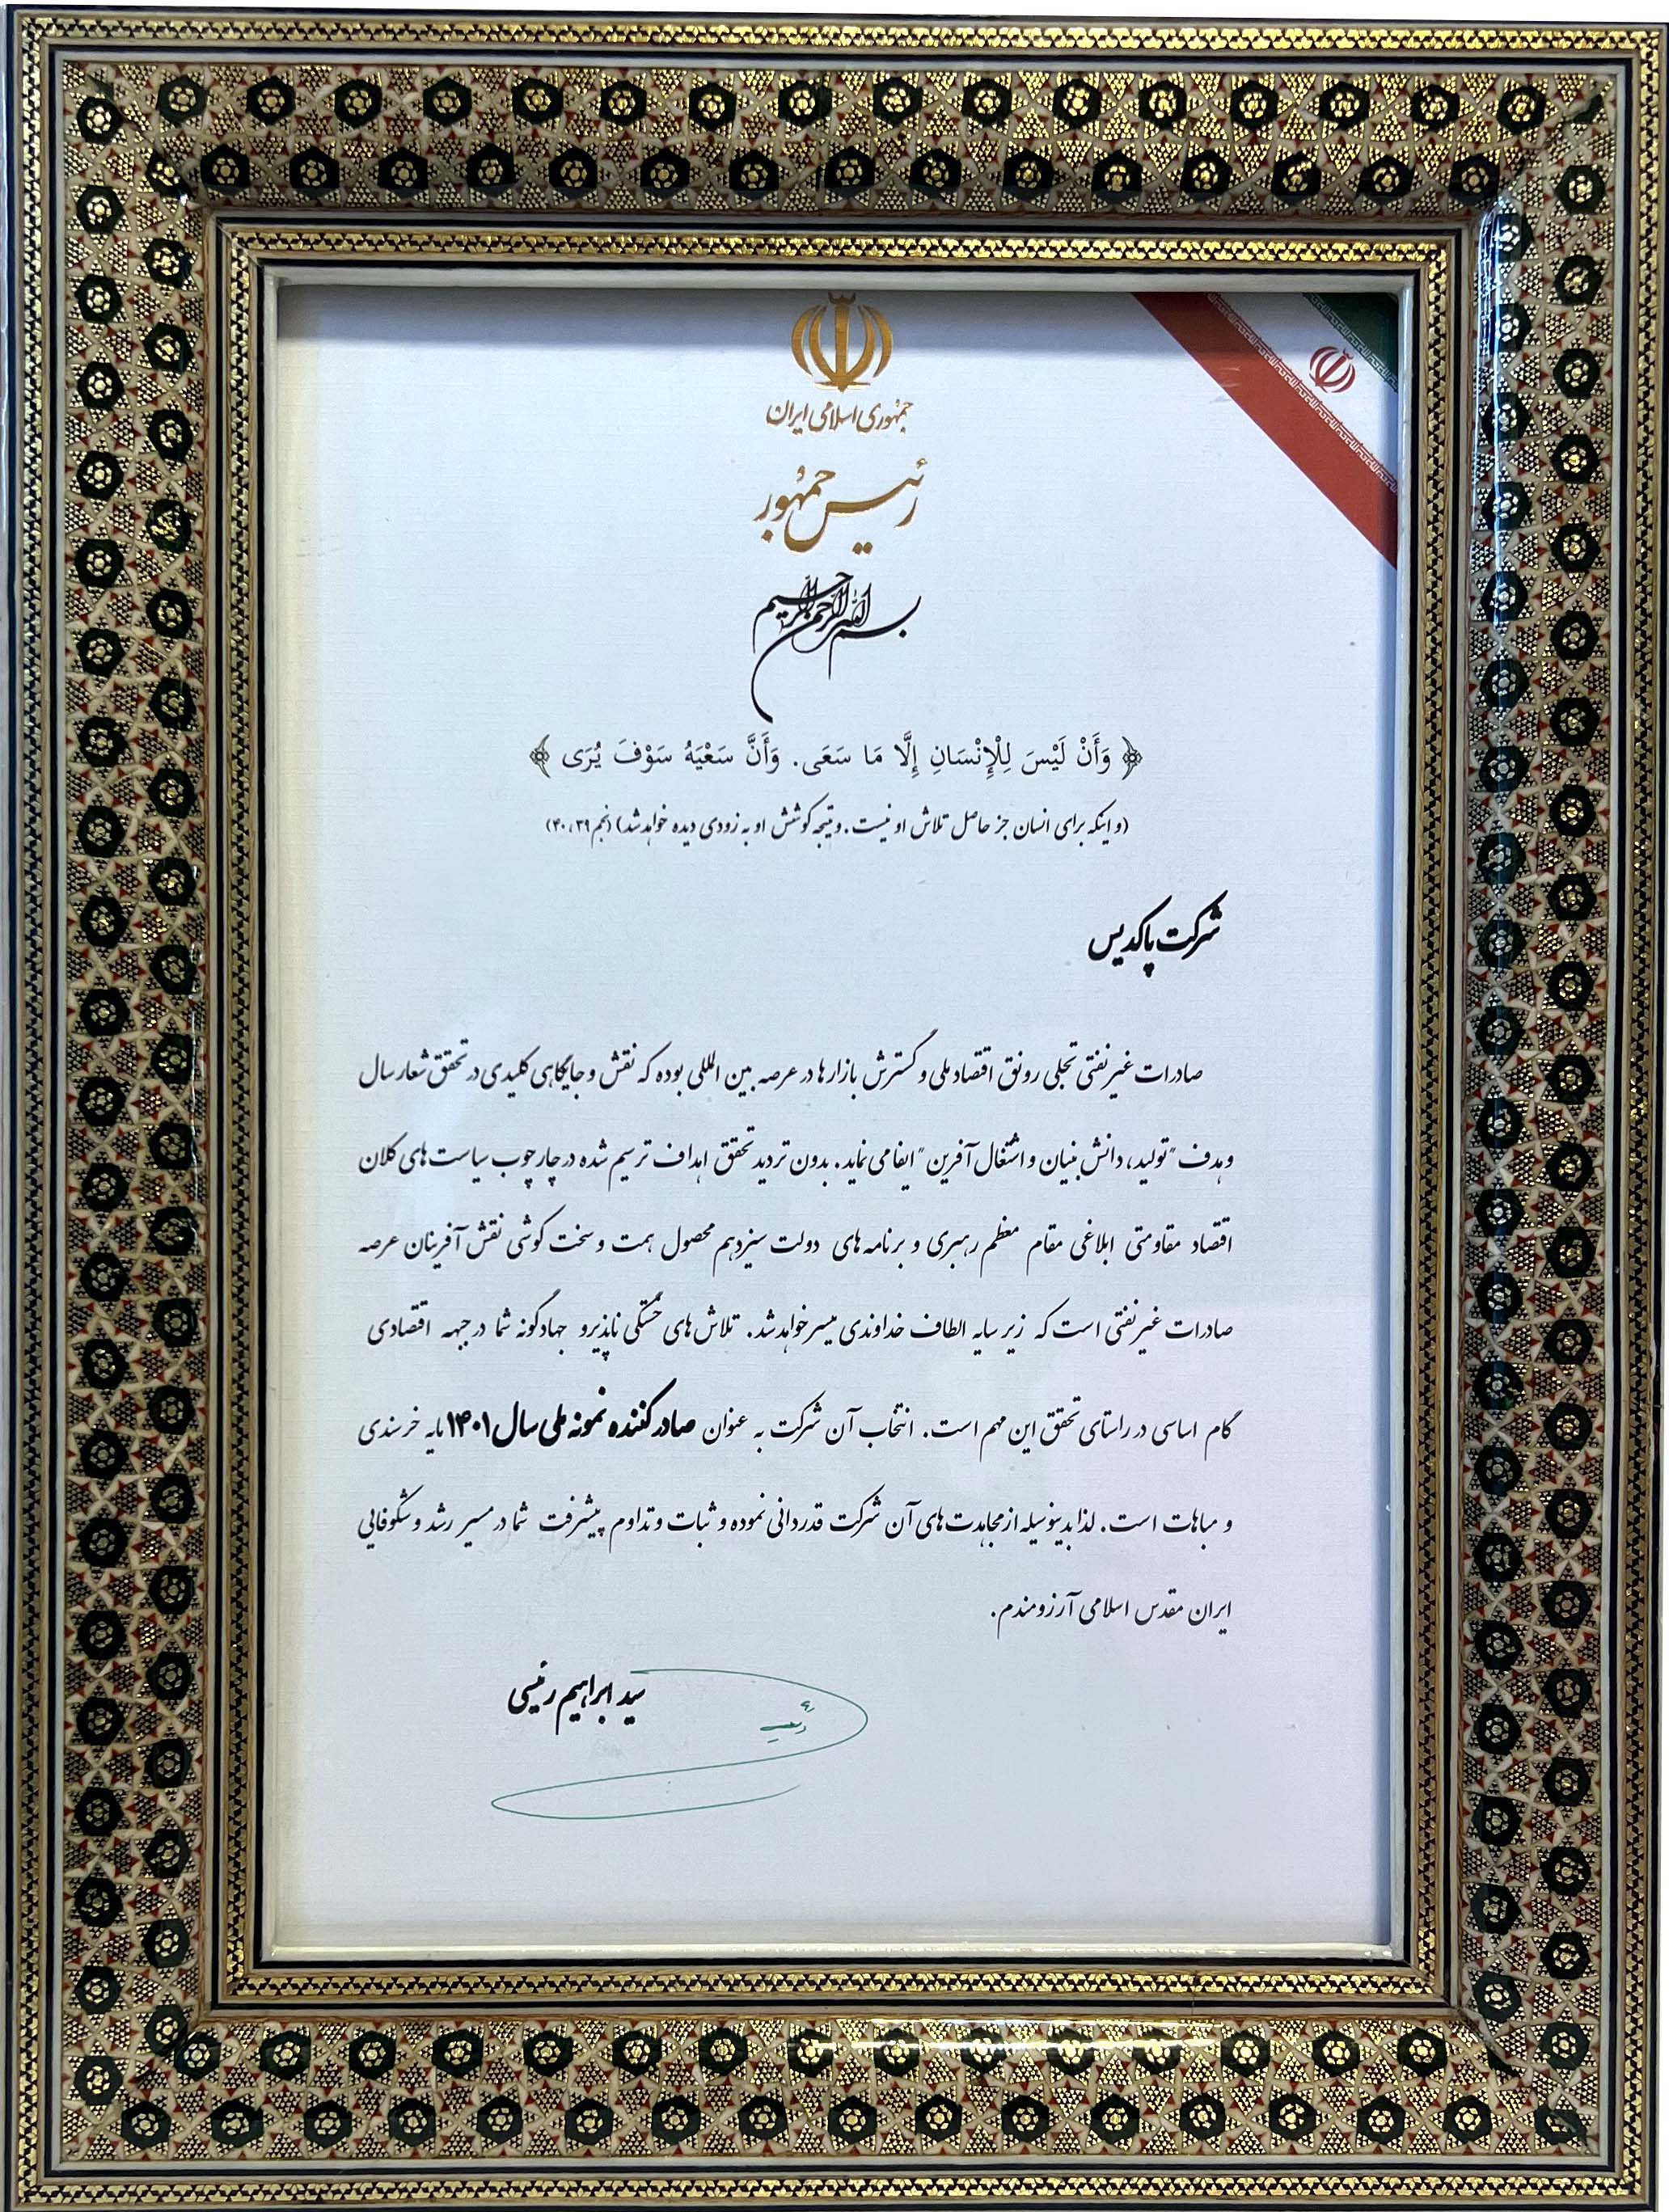 جمهوری اسلامی ایران
رئیس جمهور
بسم الله الرحمن الرحیم
﴿ وَأَنْ لَیْسَ لِلْإِنْسَانِ إِلَّا مَا سَعَى. وَأَنَّ سَعْیَهُ سَوْفَ یُرَى ﴾
(و اینکه برای انسان جز حاصل تلاش او نیست. و نتیجه کوشش او به زودی دیده خواهد شد) (نجم ۳۹، ۴۰)
شرکت پاکدیس
صادرات غیرنفتی تجلی رونق اقتصاد ملی و گسترش بازارها در عرصه بین المللی بوده که نقش و جایگاهی کلیدی در تحقق شعار سال
و هدف "تولید، دانش بنیان و اشتغال آفرین" ایفا می نماید. بدون تردید تحقق اهداف ترسیم شده در چارچوب سیاست های کلان
اقتصاد مقاومتی ابلاغی مقام معظم رهبری و برنامه های دولت سیزدهم محصول همت و سخت کوشی نقش آفرینان عرصه
صادرات غیرنفتی است که زیر سایه الطاف خداوندی میسر خواهد شد. تلاش های خستگی ناپذیر و جهادگونه شما در جبهه اقتصادی
گام اساسی در راستای تحقق این مهم است. انتخاب آن شرکت به عنوان صادر کننده نمونه ملی سال ۱۴۰۱ مایه خرسندی
و مباهات است. لذا بدینوسیله از مجاهدت های آن شرکت قدردانی نموده و ثبات و تداوم پیشرفت شما در مسیر رشد و شکوفایی
ایران مقدس اسلامی آرزومندم.
سید ابراهیم رئیسی